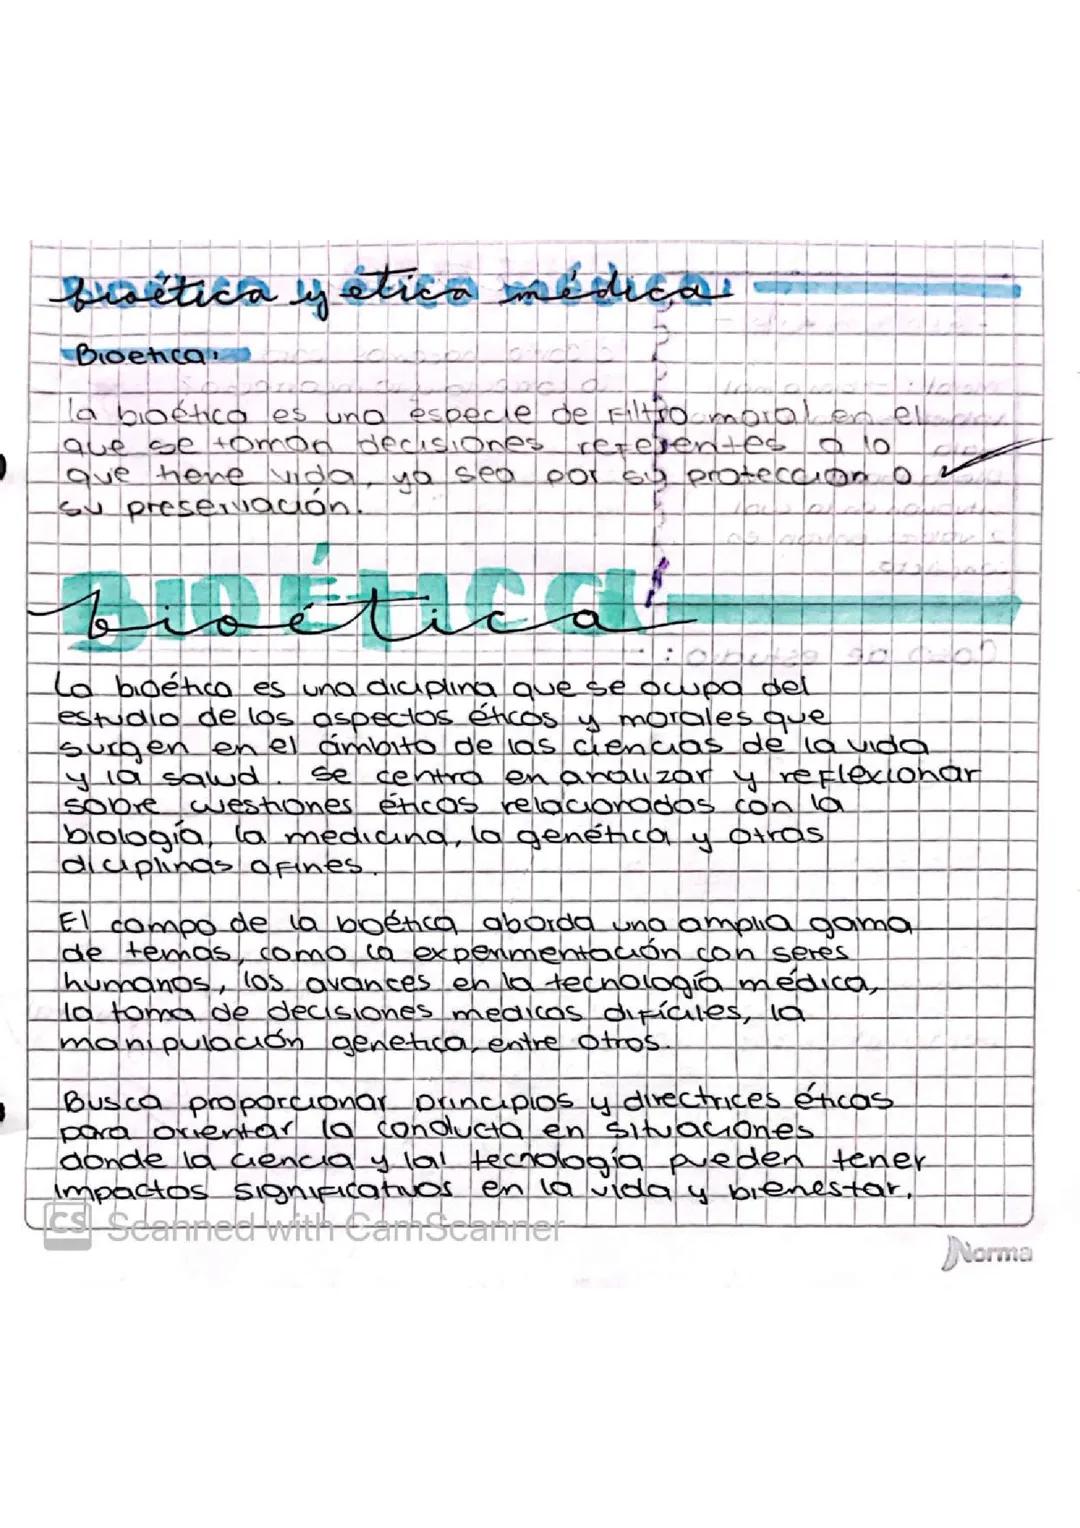 bioética y ética médica:
Bioetica:
la bioética es una especie de filtro moral en el
que se toman decisiones referentes a lo
que tiene vida, ya sea por su protección o
su preservación.
BIOÉTICA
bioética
La bioética es una diciplina que se ocupa del
estudio de los aspectos éticos y morales que
surgen en el ámbito de las ciencias de la vida
y la salud. Se centra en analizar y reflexionar
sobre cuestiones éticas relacionadas con la
biología, la medicina, la genética y otras
diciplinas afines.
El campo de la bioética aborda una amplia gama
de temas, como la experimentación con seres
humanos, los avances en la tecnología médica,
la toma de decisiones medicas difíciles, la
manipulación genetica, entre otros.
Busca proporcionar principios y directrices éticas
para orientar la conducta en situaciones
donde la ciencia y la tecnología pueden tener
impactos significativos en la vida y bienestar.
CS Scanned with CamScanner
Norma